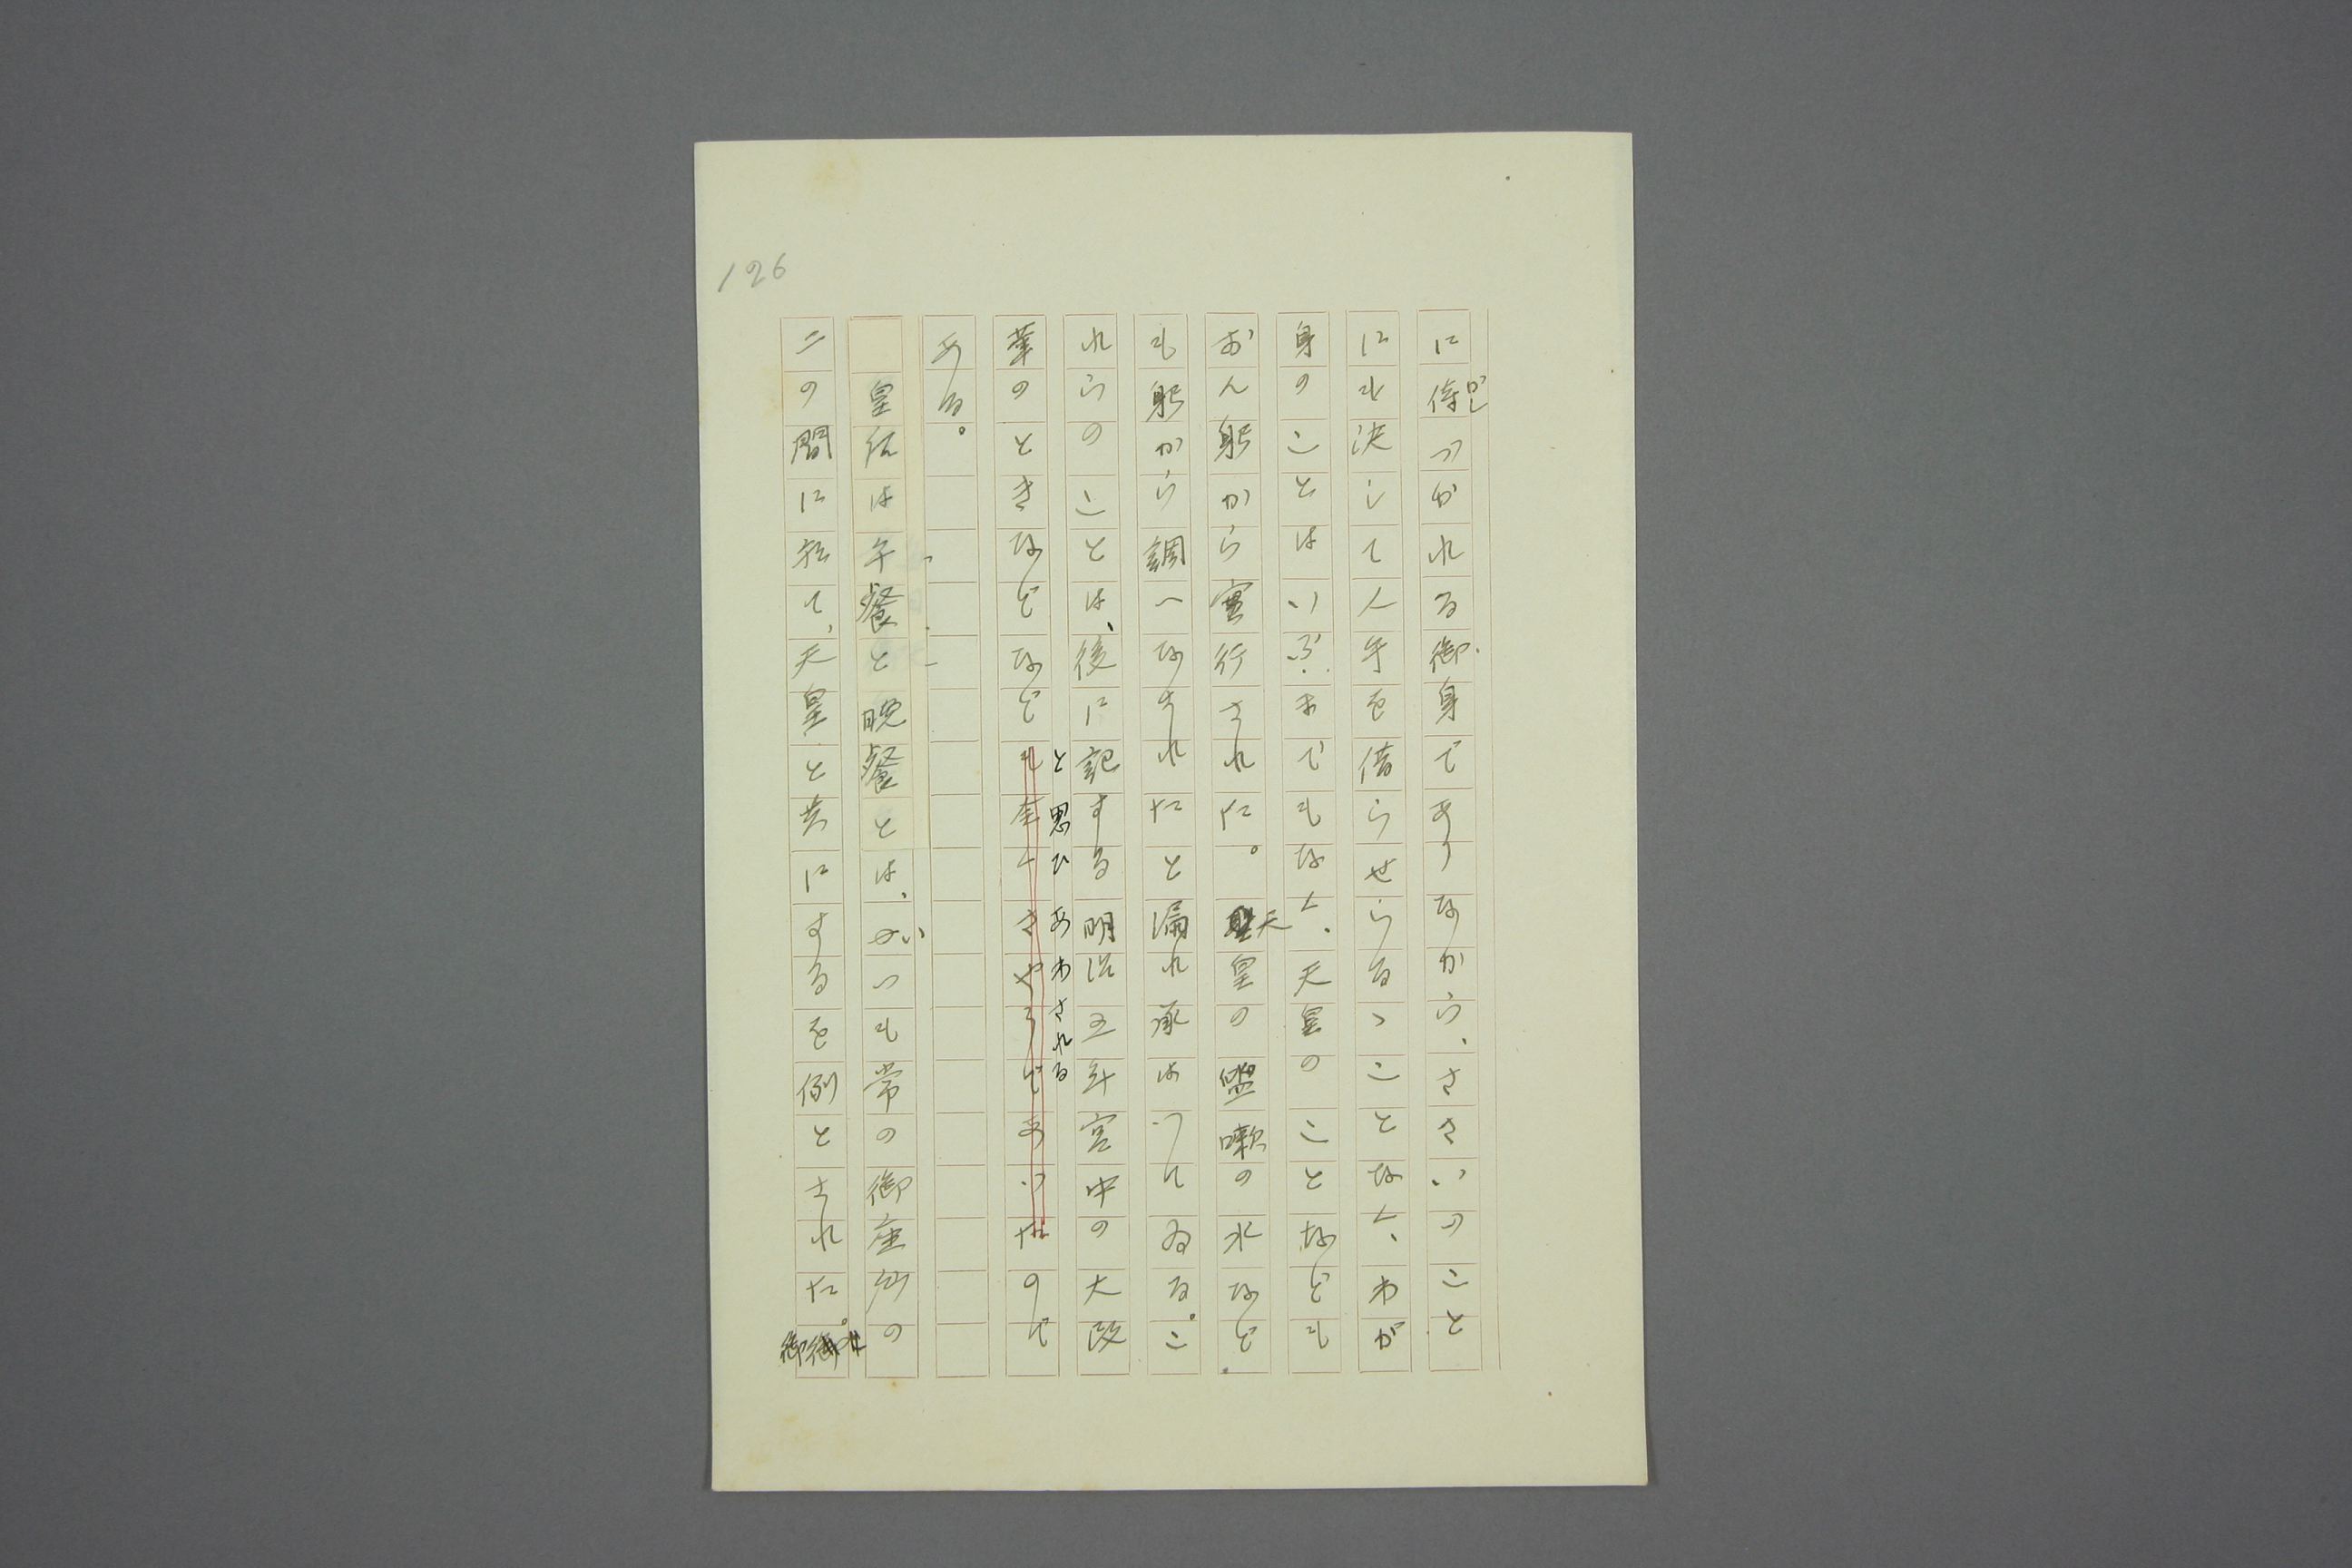 126
に侍づかれる御身でありながら、ささいのこと
かし
にも決して人手を借らせらるゝことなく、わが
身のことはいふまでもなく、天皇のことなども
おん躬から実行された。天皇の盥嗽の水など
も躬から調へなされたと漏れ承はつてゐる。こ
れらのことは、後に記する明治五年宮中の大改
と思ひあわされる
革のときなどなどもきやうであつたので
ある。
皇后は午餐と晩餐とは、いつも常の御座所の
二の間に於て、天皇と共にするを例とされた。御